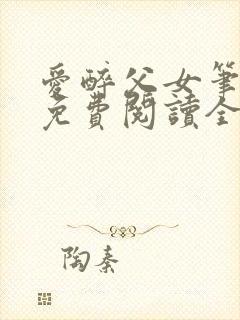 愛醉父女筆
免費閱讀全
陶秦